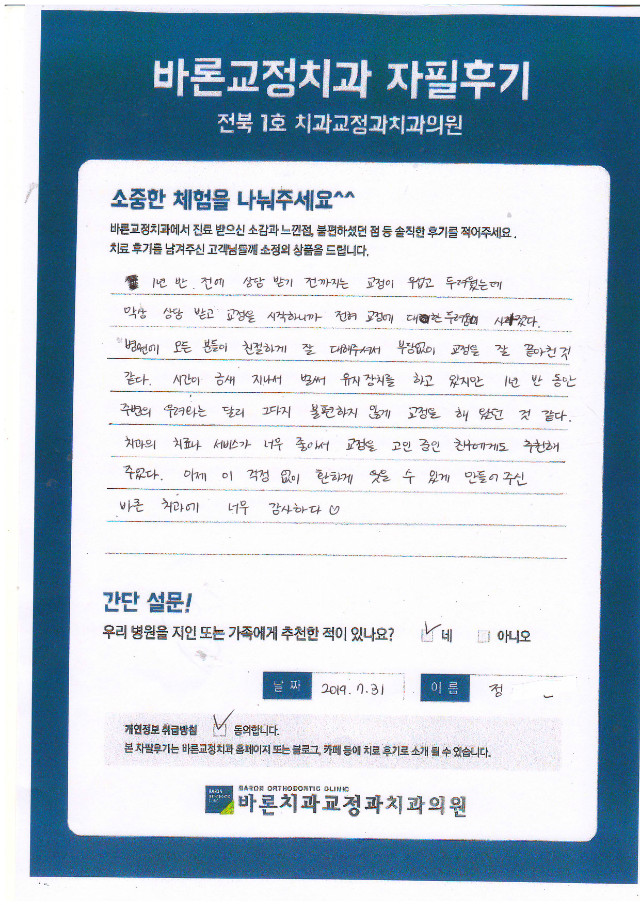 바론교정치과 자필후기
전북 1호 치과교정과치과의원
소중한 체험을 나눠주세요^^
바른교정치과에서 진료 받으신 소감과 느낀점, 불편하셨던 점 등 솔직한 후기를 적어주세요.
치료 후기를 남겨주신 고객님들께 소정의 상품을 드립니다.
1년 반 전에 상담 받기 전까지는 교정이 무섭고 두려웠는데
막상 상담 받고 교정을 시작하니까 전혀 교정에 대한 두려움이 사라졌다.
병원에 모든 분들이 친절하게 잘 대해주셔서 부담없이 교정을 잘 끝마친 것
같다. 시간이 금새 지나서 벌써 유지장치를 하고 있지만 1년 반 동안
주변의 우려와는 달리 그다지 불편하지 않게 교정을 해 왔던 것 같다.
치과의 치료나 서비스가 너무 좋아서 교정을 고민 중인 친구에게도 추천해
주었다. 이제 이 걱정 없이 환하게 웃을 수 있게 만들어 주신
바른 치과에 너무 감사하다 ♡
간단 설문!
우리 병원을 지인 또는 가족에게 추천한 적이 있나요? ☑ 네 ☐ 아니오
날짜 2019.7.31 이름 정
개인정보 취급방침 ☑ 동의합니다.
본 자필후기는 바른교정치과 홈페이지 또는 블로그, 카페 등에 치료 후기로 소개 될 수 있습니다.
BARON ORTHODONTIC CLINIC
바론치과교정과치과의원